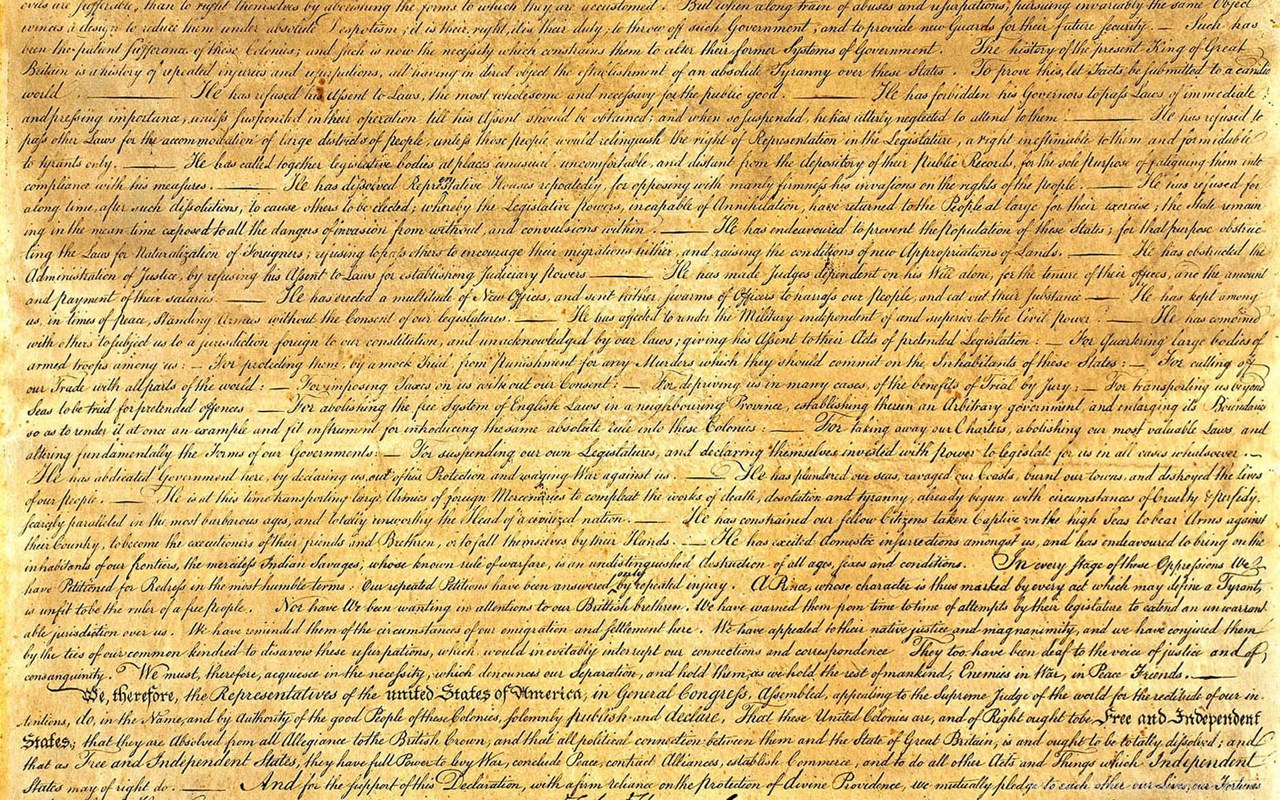 evils are sufferable, than to right themselves by abolishing the forms to which they are accustomed. But when a long train of abuses and usurpations, pursuing invariably the same Object
evinces a design to reduce them under absolute Despotism, it is their right, it is their duty, to throw off such Government, and to provide new Guards for their future security. — Such has
been the patient sufferance of these Colonies; and such is now the necessity which constrains them to alter their former Systems of Government. The history of the present King of Great
Britain is a history of repeated injuries and usurpations, all having in direct object the establishment of an absolute Tyranny over these States. To prove this, let Facts be submitted to a candid
world. — He has refused his Assent to Laws, the most wholesome and necessary for the public good. — He has forbidden his Governors to pass Laws of immediate
and pressing importance, unless suspended in their operation till his Assent should be obtained; and when so suspended, he has utterly neglected to attend to them. — He has refused to
pass other Laws for the accommodation of large districts of people, unless those people would relinquish the right of Representation in the Legislature, a right inestimable to them and formidable
to tyrants only. — He has called together legislative bodies at places unusual, uncomfortable, and distant from the depository of their Public Records, for the sole Purpose of fatiguing them into
compliance with his measures. — He has dissolved Representative Houses repeatedly, for opposing with manly firmness his invasions on the rights of the people. — He has refused for
a long time, after such dissolutions, to cause others to be elected; whereby the Legislative powers, incapable of Annihilation, have returned to the People at large for their exercise; the State remain
ing in the mean time exposed to all the dangers of invasion from without, and convulsions within. — He has endeavoured to prevent the Population of these States; for that purpose obstruc-
ting the Laws for Naturalization of Foreigners; refusing to pass others to encourage their migrations hither, and raising the conditions of new Appropriations of Lands. — He has obstructed the
Administration of Justice, by refusing his Assent to Laws for establishing Judiciary powers. — He has made Judges dependent on his Will alone, for the tenure of their offices, and the amount
and payment of their salaries. — He has erected a multitude of New Offices, and sent hither swarms of Officers to harrass our People, and eat out their substance. — He has kept among
us, in times of peace, Standing Armies without the Consent of our legislatures. — He has affected to render the Military independent of and superior to the Civil power. — He has combined
with others to subject us to a jurisdiction foreign to our constitution, and unacknowledged by our laws; giving his Assent to their Acts of pretended Legislation: — For Quartering large bodies of
armed troops among us: — For protecting them, by a mock Trial, from Punishment for any Murders which they should commit on the Inhabitants of these States: — For cutting off
our Trade with all parts of the world: — For imposing Taxes on us without our Consent: — For depriving us in many cases, of the benefits of Trial by Jury: — For transporting us beyond
Seas to be tried for pretended offences — For abolishing the free System of English Laws in a neighbouring Province, establishing therein an Arbitrary government, and enlarging its Boundaries
so as to render it at once an example and fit instrument for introducing the same absolute rule into these Colonies: — For taking away our Charters, abolishing our most valuable Laws, and
altering fundamentally the Forms of our Governments: — For suspending our own Legislatures, and declaring themselves invested with power to legislate for us in all cases whatsoever. —
He has abdicated Government here, by declaring us out of his Protection and waging War against us. — He has plundered our seas, ravaged our Coasts, burnt our towns, and destroyed the lives
of our people. — He is at this time transporting large Armies of foreign Mercenaries to compleat the works of death, desolation and tyranny, already begun with circumstances of Cruelty & perfidy
scarcely paralleled in the most barbarous ages, and totally unworthy the Head of a civilized nation. — He has constrained our fellow Citizens taken Captive on the high Seas to bear Arms against
their Country, to become the executioners of their friends and Brethren, or to fall themselves by their Hands. — He has excited domestic insurrections amongst us, and has endeavoured to bring on the
inhabitants of our frontiers, the merciless Indian Savages, whose known rule of warfare, is an undistinguished destruction of all ages, sexes and conditions. In every stage of these Oppressions We
have Petitioned for Redress in the most humble terms: Our repeated Petitions have been answered only by repeated injury. A Prince, whose character is thus marked by every act which may define a Tyrant,
is unfit to be the ruler of a free people. Nor have We been wanting in attentions to our Brittish brethren. We have warned them from time to time of attempts by their legislature to extend an unwarrant
able jurisdiction over us. We have reminded them of the circumstances of our emigration and settlement here. We have appealed to their native justice and magnanimity, and we have conjured them
by the ties of our common kindred to disavow these usurpations, which, would inevitably interrupt our connections and correspondence They too have been deaf to the voice of justice and of
consanguinity. We must, therefore, acquiesce in the necessity, which denounces our Separation, and hold them, as we hold the rest of mankind, Enemies in War, in Peace Friends. —
We, therefore, the Representatives of the united States of America, in General Congress, Assembled, appealing to the Supreme Judge of the world for the rectitude of our in
tentions, do, in the Name, and by Authority of the good People of these Colonies, solemnly publish and declare, That these United Colonies are, and of Right ought to be Free and Independent
States; that they are Absolved from all Allegiance to the British Crown, and that all political connection between them and the State of Great Britain, is and ought to be totally dissolved; and
that as Free and Independent States, they have full Power to levy War, conclude Peace, contract Alliances, establish Commerce, and to do all other Acts and Things which Independent
States may of right do. — And for the support of this Declaration, with a firm reliance on the protection of divine Providence, we mutually pledge to each other our Lives, our Fortunes